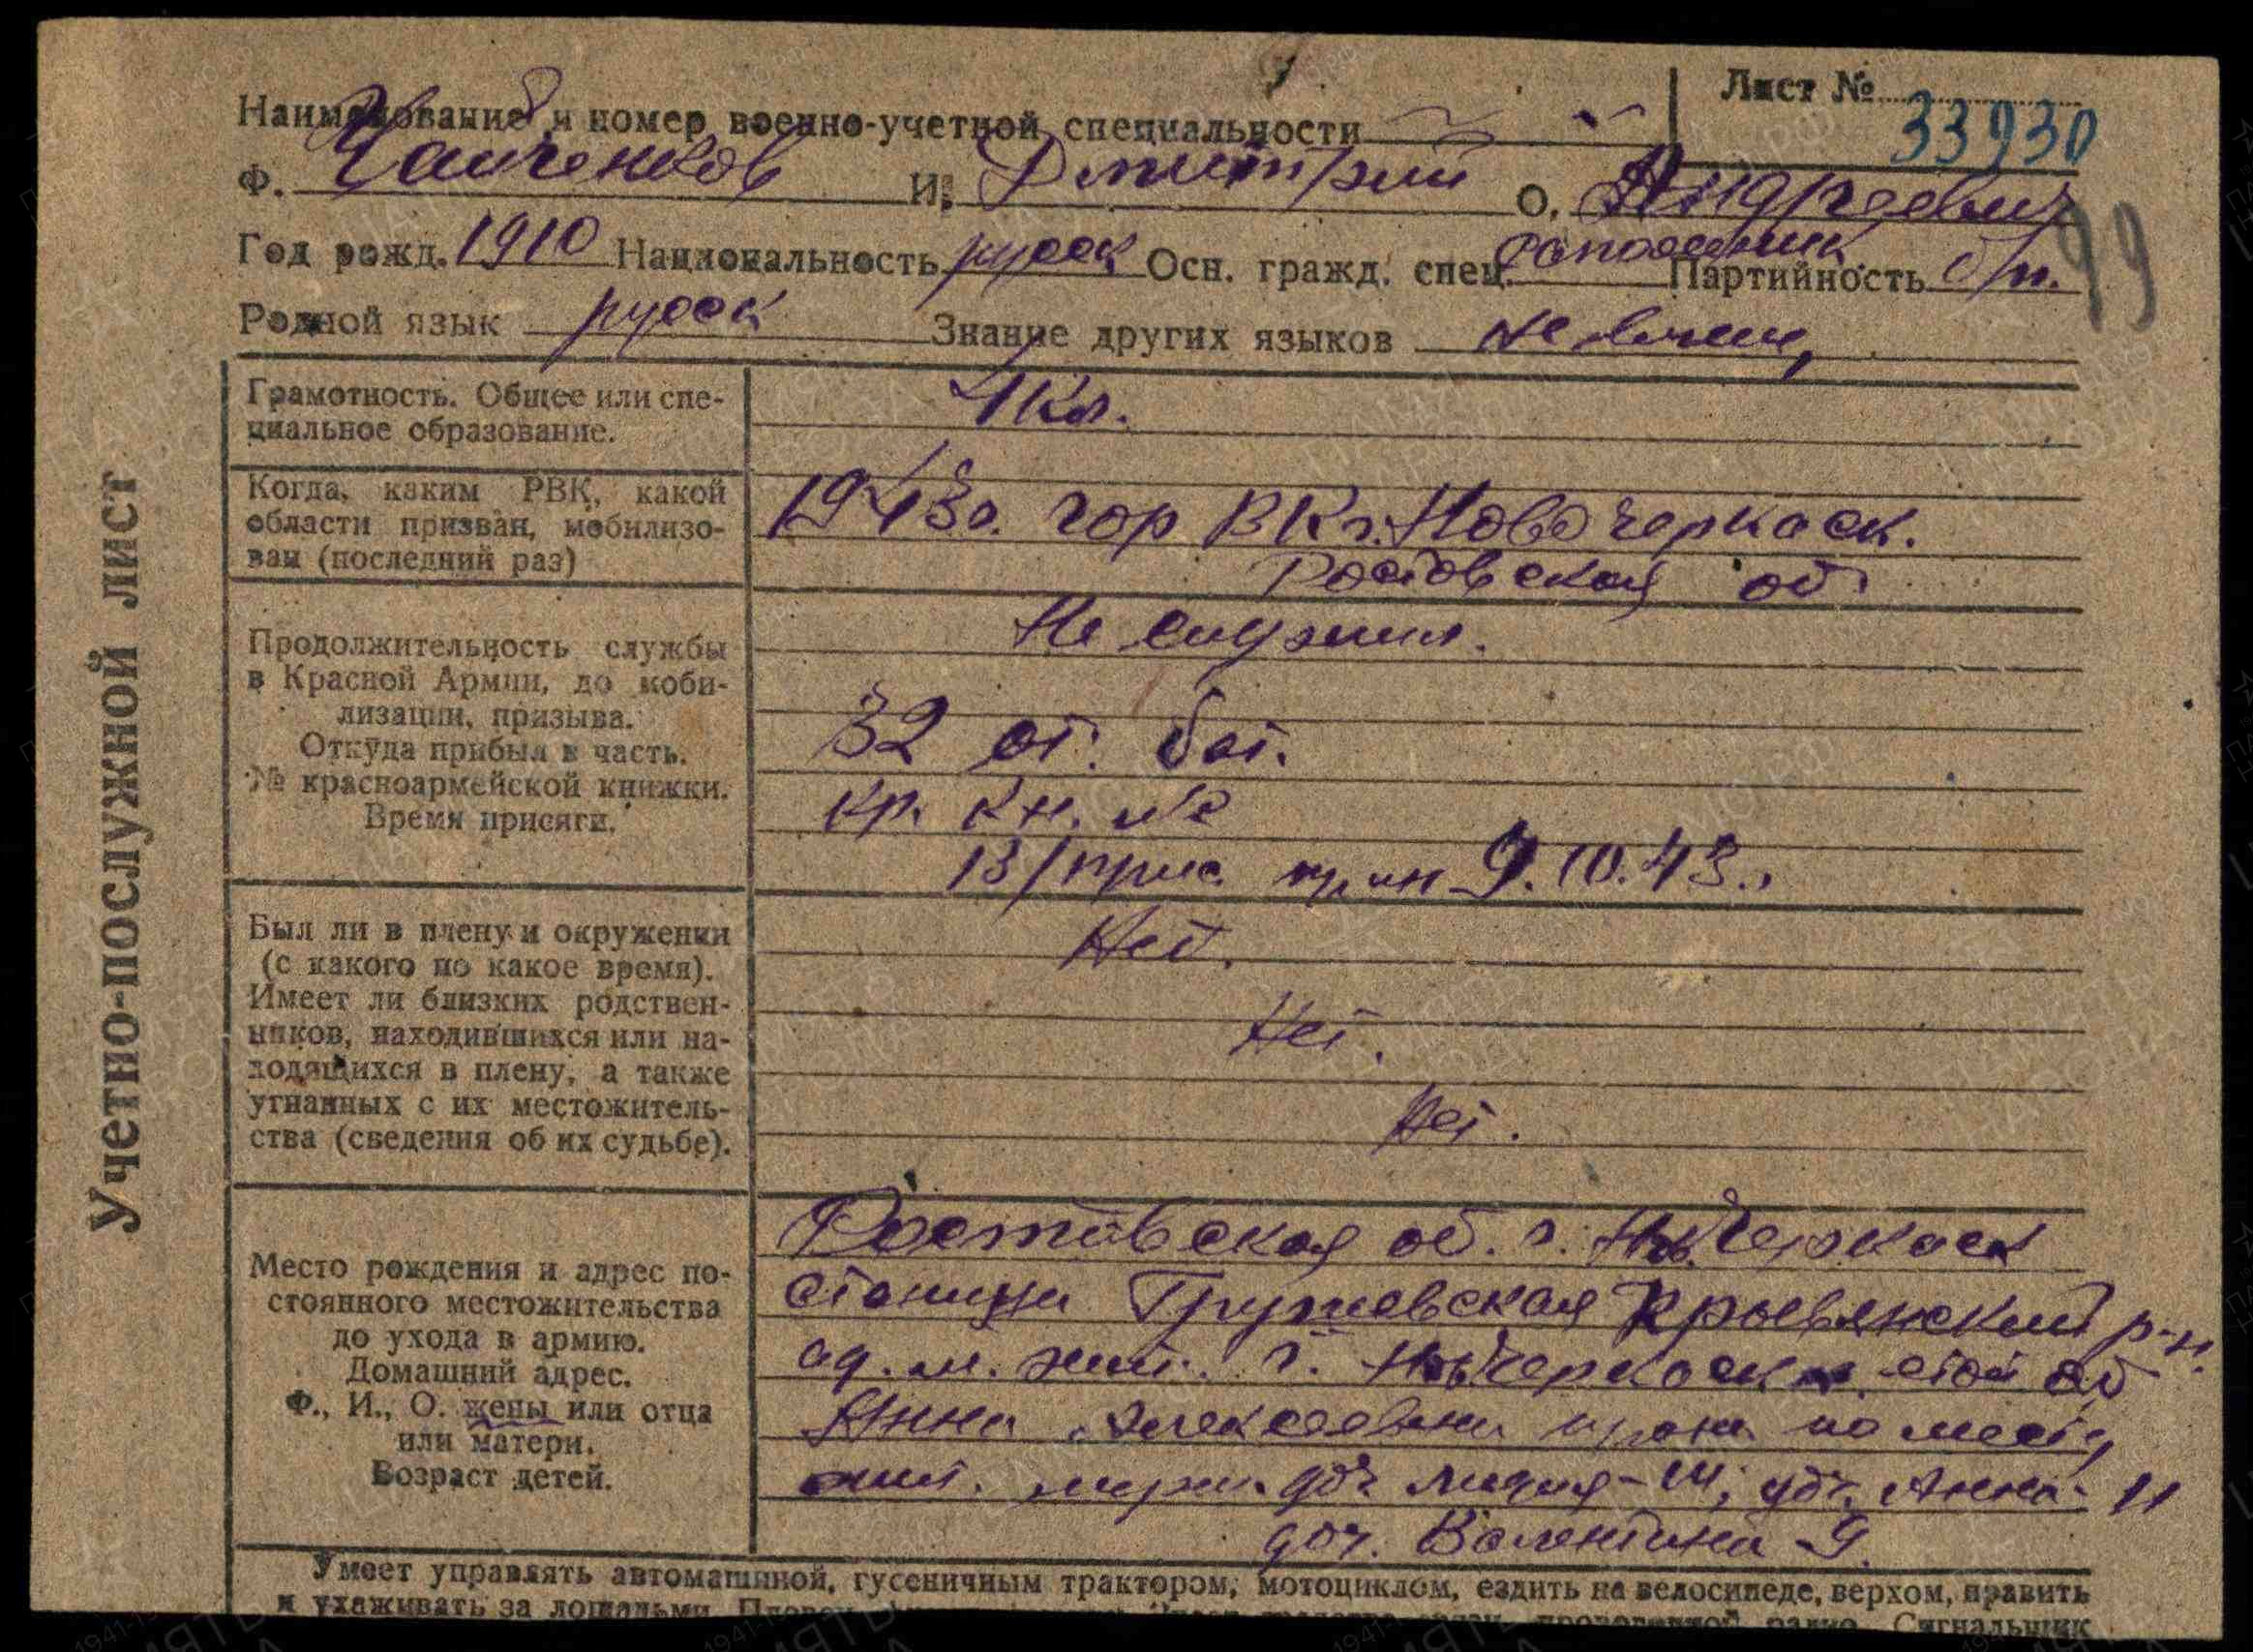 Лист № 33930
Наименование и номер военно-учетной специальности
Ф. И. Дмитрий О. Андреевич
99
Год рожд. 1910 Национальность русск Осн. гражд. спец. сапожник Партийность б/п.
Родной язык русск Знание других языков не влад.
Учетно-послужной лист
Грамотность. Общее или спе-
циальное образование.
4 кл.
Когда, каким РВК, какой
области призван, мобилизо-
ван (последний раз)
1943г. гор ВКг. Новочеркасск.
Ростовская об.
Продолжительность службы
в Красной Армии, до моби-
лизации, призыва.
Откуда прибыл в часть.
№ красноармейской книжки.
Время присяги.
Не служил.
32 от. бат.
кр. кн. №
В/прис. прин 9.10.43.
Был ли в плену и окружении
(с какого по какое время).
Имеет ли близких родствен-
ников, находившихся или на-
ходящихся в плену, а также
угнанных с их местожитель-
ства (сведения об их судьбе).
Нет.
Нет.
Нет.
Место рождения и адрес по-
стоянного местожительства
до ухода в армию.
Домашний адрес.
Ф., И., О. жены или отца
или матери.
Возраст детей.
Ростовская об. г. Нов.Черкаск
станица Грушевская Кривянский р-н.
ад. м. жит. г. Нов.Черкаск
Анна Алексеевна прож. по месту
жит. доч Лидия - доч. Анна - 11
доч. Валентина - 9.
Умеет управлять автомашиной, гусеничным трактором, мотоциклом, ездить на велосипеде, верхом, править
и ухаживать за лошадьми.